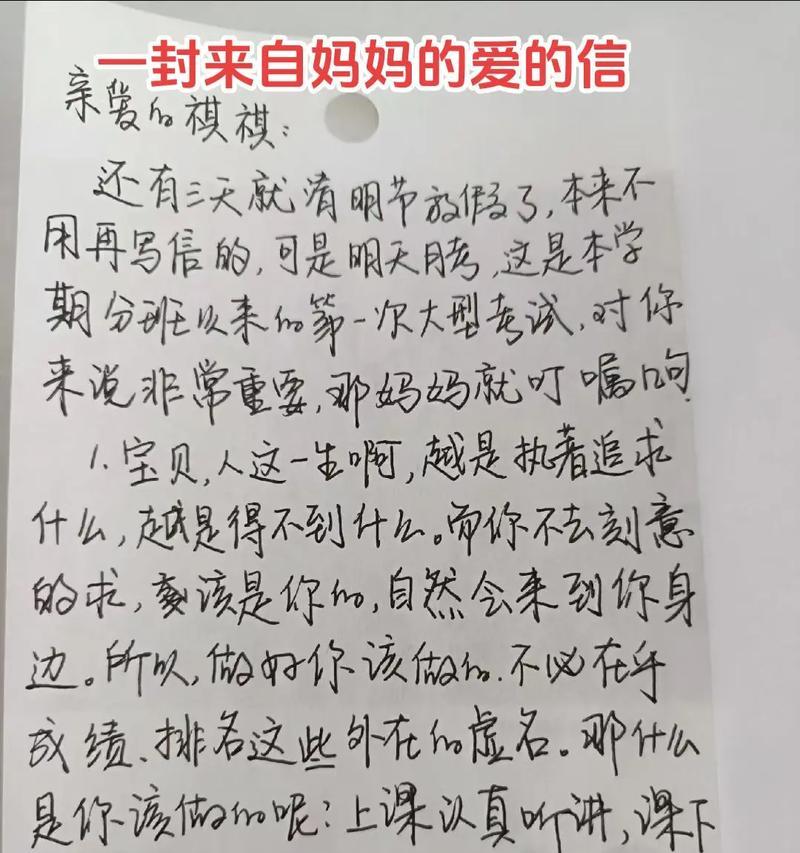 一封来自妈妈的爱的信
亲爱的祺祺:
还有三天就清明节放假了,本来不
用再写信的,可是明天月考,这是本学
期分班以来的第一次大型考试,对你
来说非常重要,那妈妈就叮嘱几句
1.宝贝,人这一生啊,越是执著追求
什么,越是得不到什么。而你不去刻意
的求,该是你的,自然会来到你身
边。所以,做好你该做的.不必在乎
成绩、排名这些外在的虚名。那什么
是你该做的呢?上课认真听讲,课下